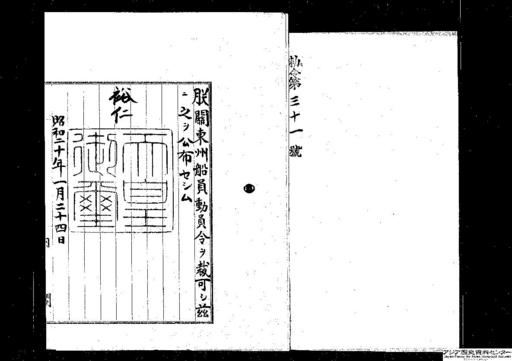 勅令第三十一號
朕關東州船員動員令ヲ裁可シ茲
ニ之ヲ公布セシム
裕仁
天皇
御璽
昭和二十年一月二十四日
内閣
アジア歴史資料センター